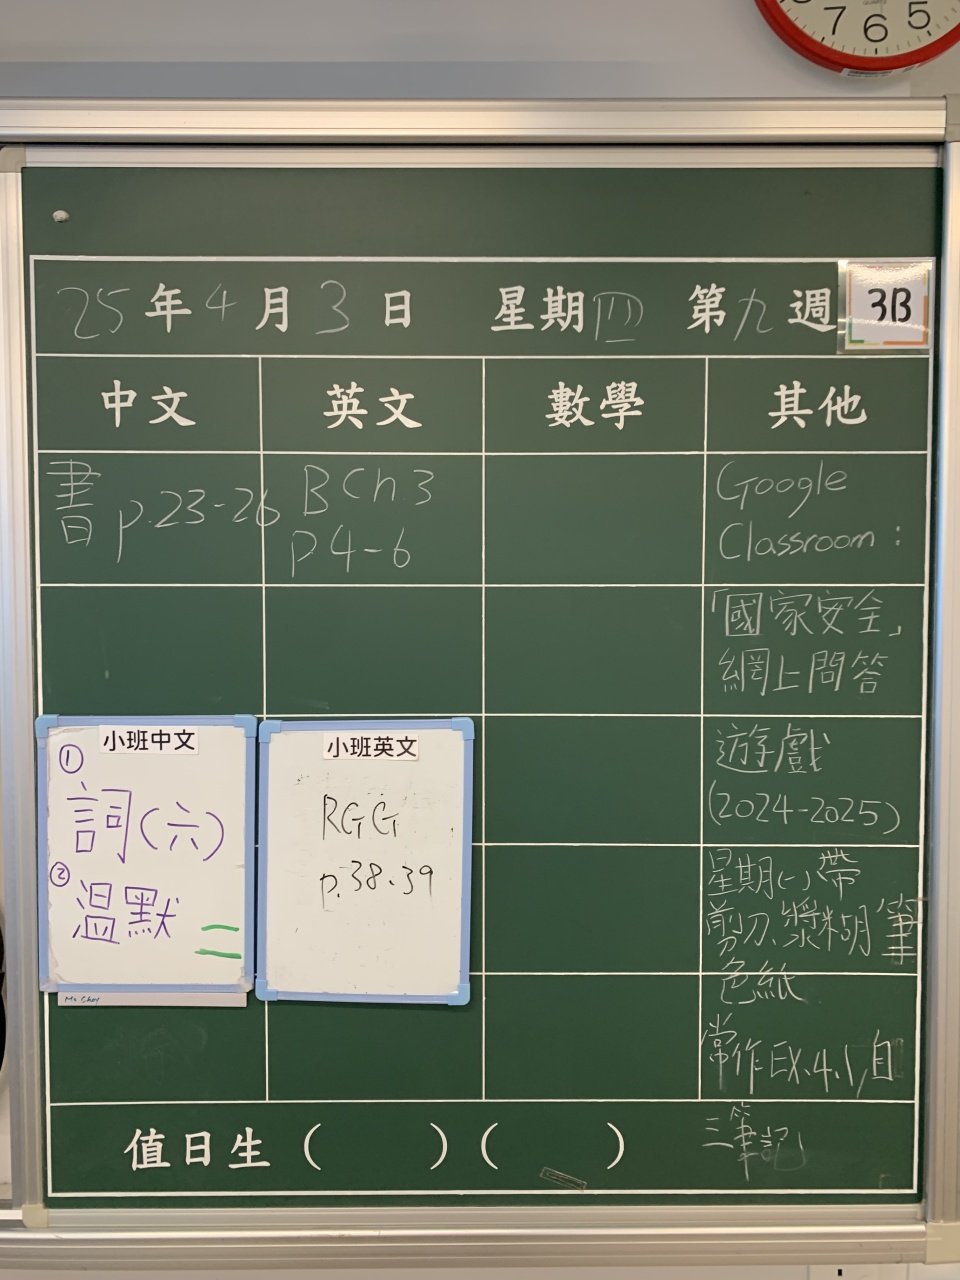 7 6 5
25年4月3日 星期四 第九週 3B
中文 英文 數學 其他
書 p.23-26
B Ch 3
p.4-6
Google
Classroom:
「國家安全」
網上問答
遊戲
(2024-2025)
星期(一)帶
剪刀、漿糊筆
色紙
常作EX.4.1,自
三筆記
小班中文
① 詞(六)
② 温默
二
Ms Choy
小班英文
RGG
p.38.39
值日生( )( )